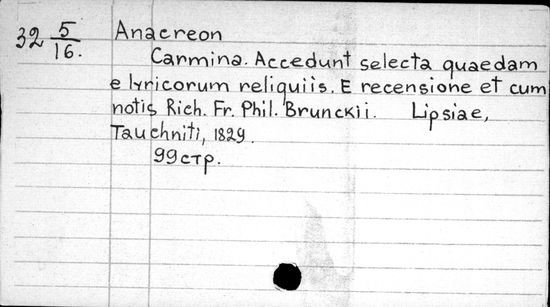 32 5/16. Anacreon
Carmina. Accedunt selecta quaedam
e lyricorum reliquiis. E recensione et cum
notis Rich. Fr. Phil. Brunckii. Lipsiae,
Tauchniti, 1829.
99 стр.